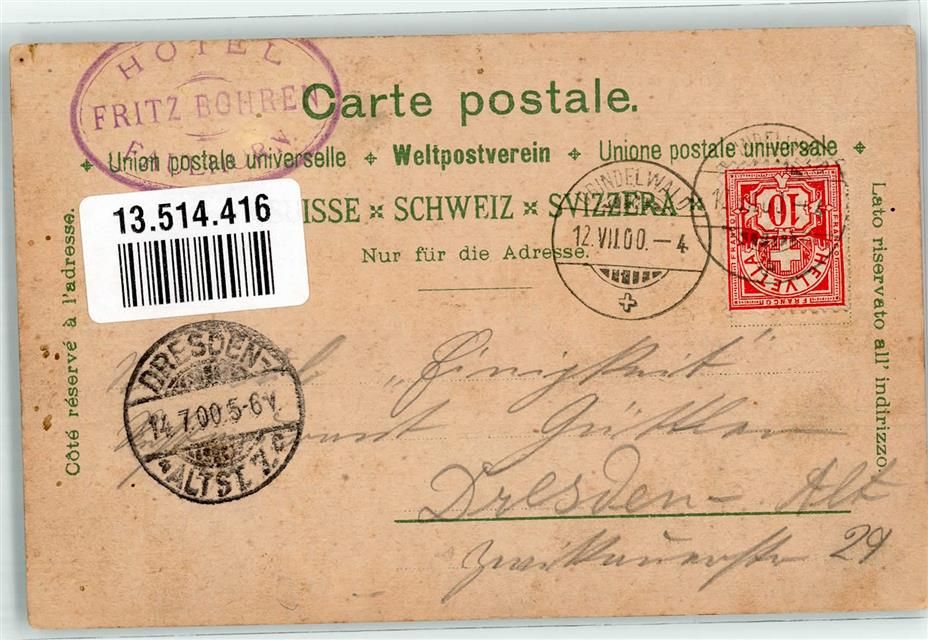 HOTEL
FRITZ BOHREN
Carte postale.
Union postale universelle ✦ Weltpostverein ✦ Unione postale universale
13.514.416
UISSE × SCHWEIZ × SVIZZERA
Nur für die Adresse.
Côté réservé à l'adresse.
Lato riservato all' indirizzo.
GRINDELWALD
12.VII.00.–4
GRINDELWALD
10
HELVETIA
FRANCO
DRESDEN-
14.7.00.5-6V
*ALTST.7.c
„Einigkeit"
Güttler
Dresden-Alt
Zwickauerstr 29